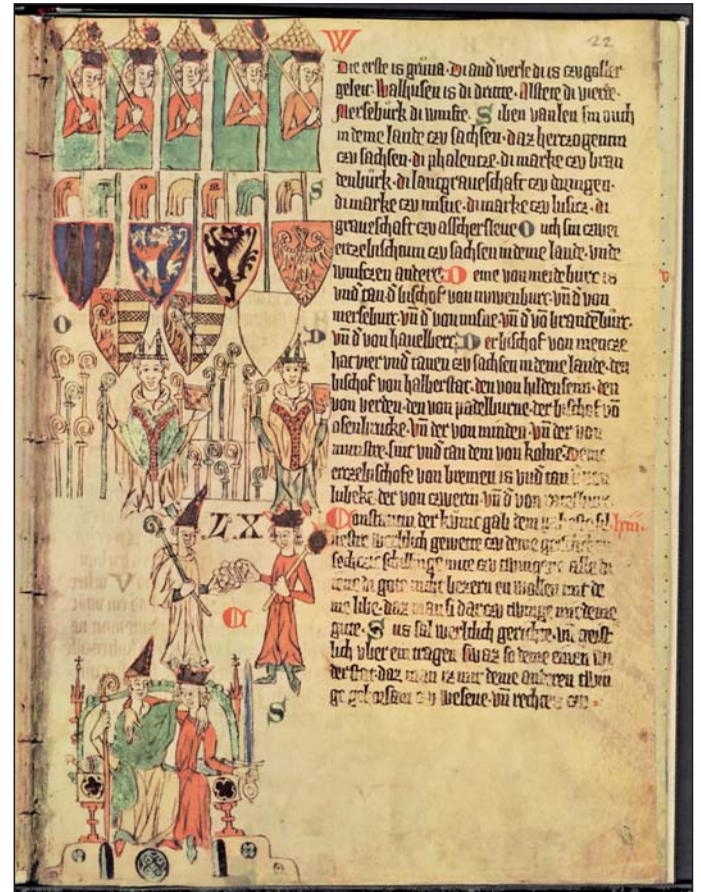 22
W
Die erste is grůna. Di and werle di is czu gosler
geleit. Walhusen is di dritte. Alstete di vierde.
Merseburk di vumfte. Siben vanlen sin ouch
in deme lande czu sachsen. daz herczogetum
czu sachsen. di phalencze. di marke czu bran
denburk. di lantgraueschaft czu duringen.
di marke czu misne. di marke czu lusicz. di
graueschaft czu asschersleue Ouch sin czwei
erczebischtum czu sachsen in deme lande. vnde
vumfczen andere. Deme von meideburc is
vnd tan d bischof von nuwenburc. vn d von
merseburc. vn d von misne. vn d vo brandebur.
vn d von hauelberc. Der bischof von mencze
hat vier vnd tanen czu sachsen in deme lande. den
bischof von halberstat. den von hildensem. den
von verden. den von padelburne. der bischof vo
osenbrucke. vn der von minden. vn der von
munstre. sint vnd tan dem von kolne. Deme
erczebischofe von bremen is vnd tan
lubeke. der von czwerin. vn d von
Constantin der kunic gab dem
werltlich gewette czu deme
sechczic schillinge mite czu twingene alle di
iene di gote nicht bezern en wollen mit de
me libe. daz man si dar czu twinge mit deme
gute. Sus sal werltlich gerichte. vn geist
lich vber ein tragen swaz so deme einen
der stat. daz man iz mit deme anderen twin
ge gehorsam czu wesene. vn rechtes czu
S
O
D
LX
C
S